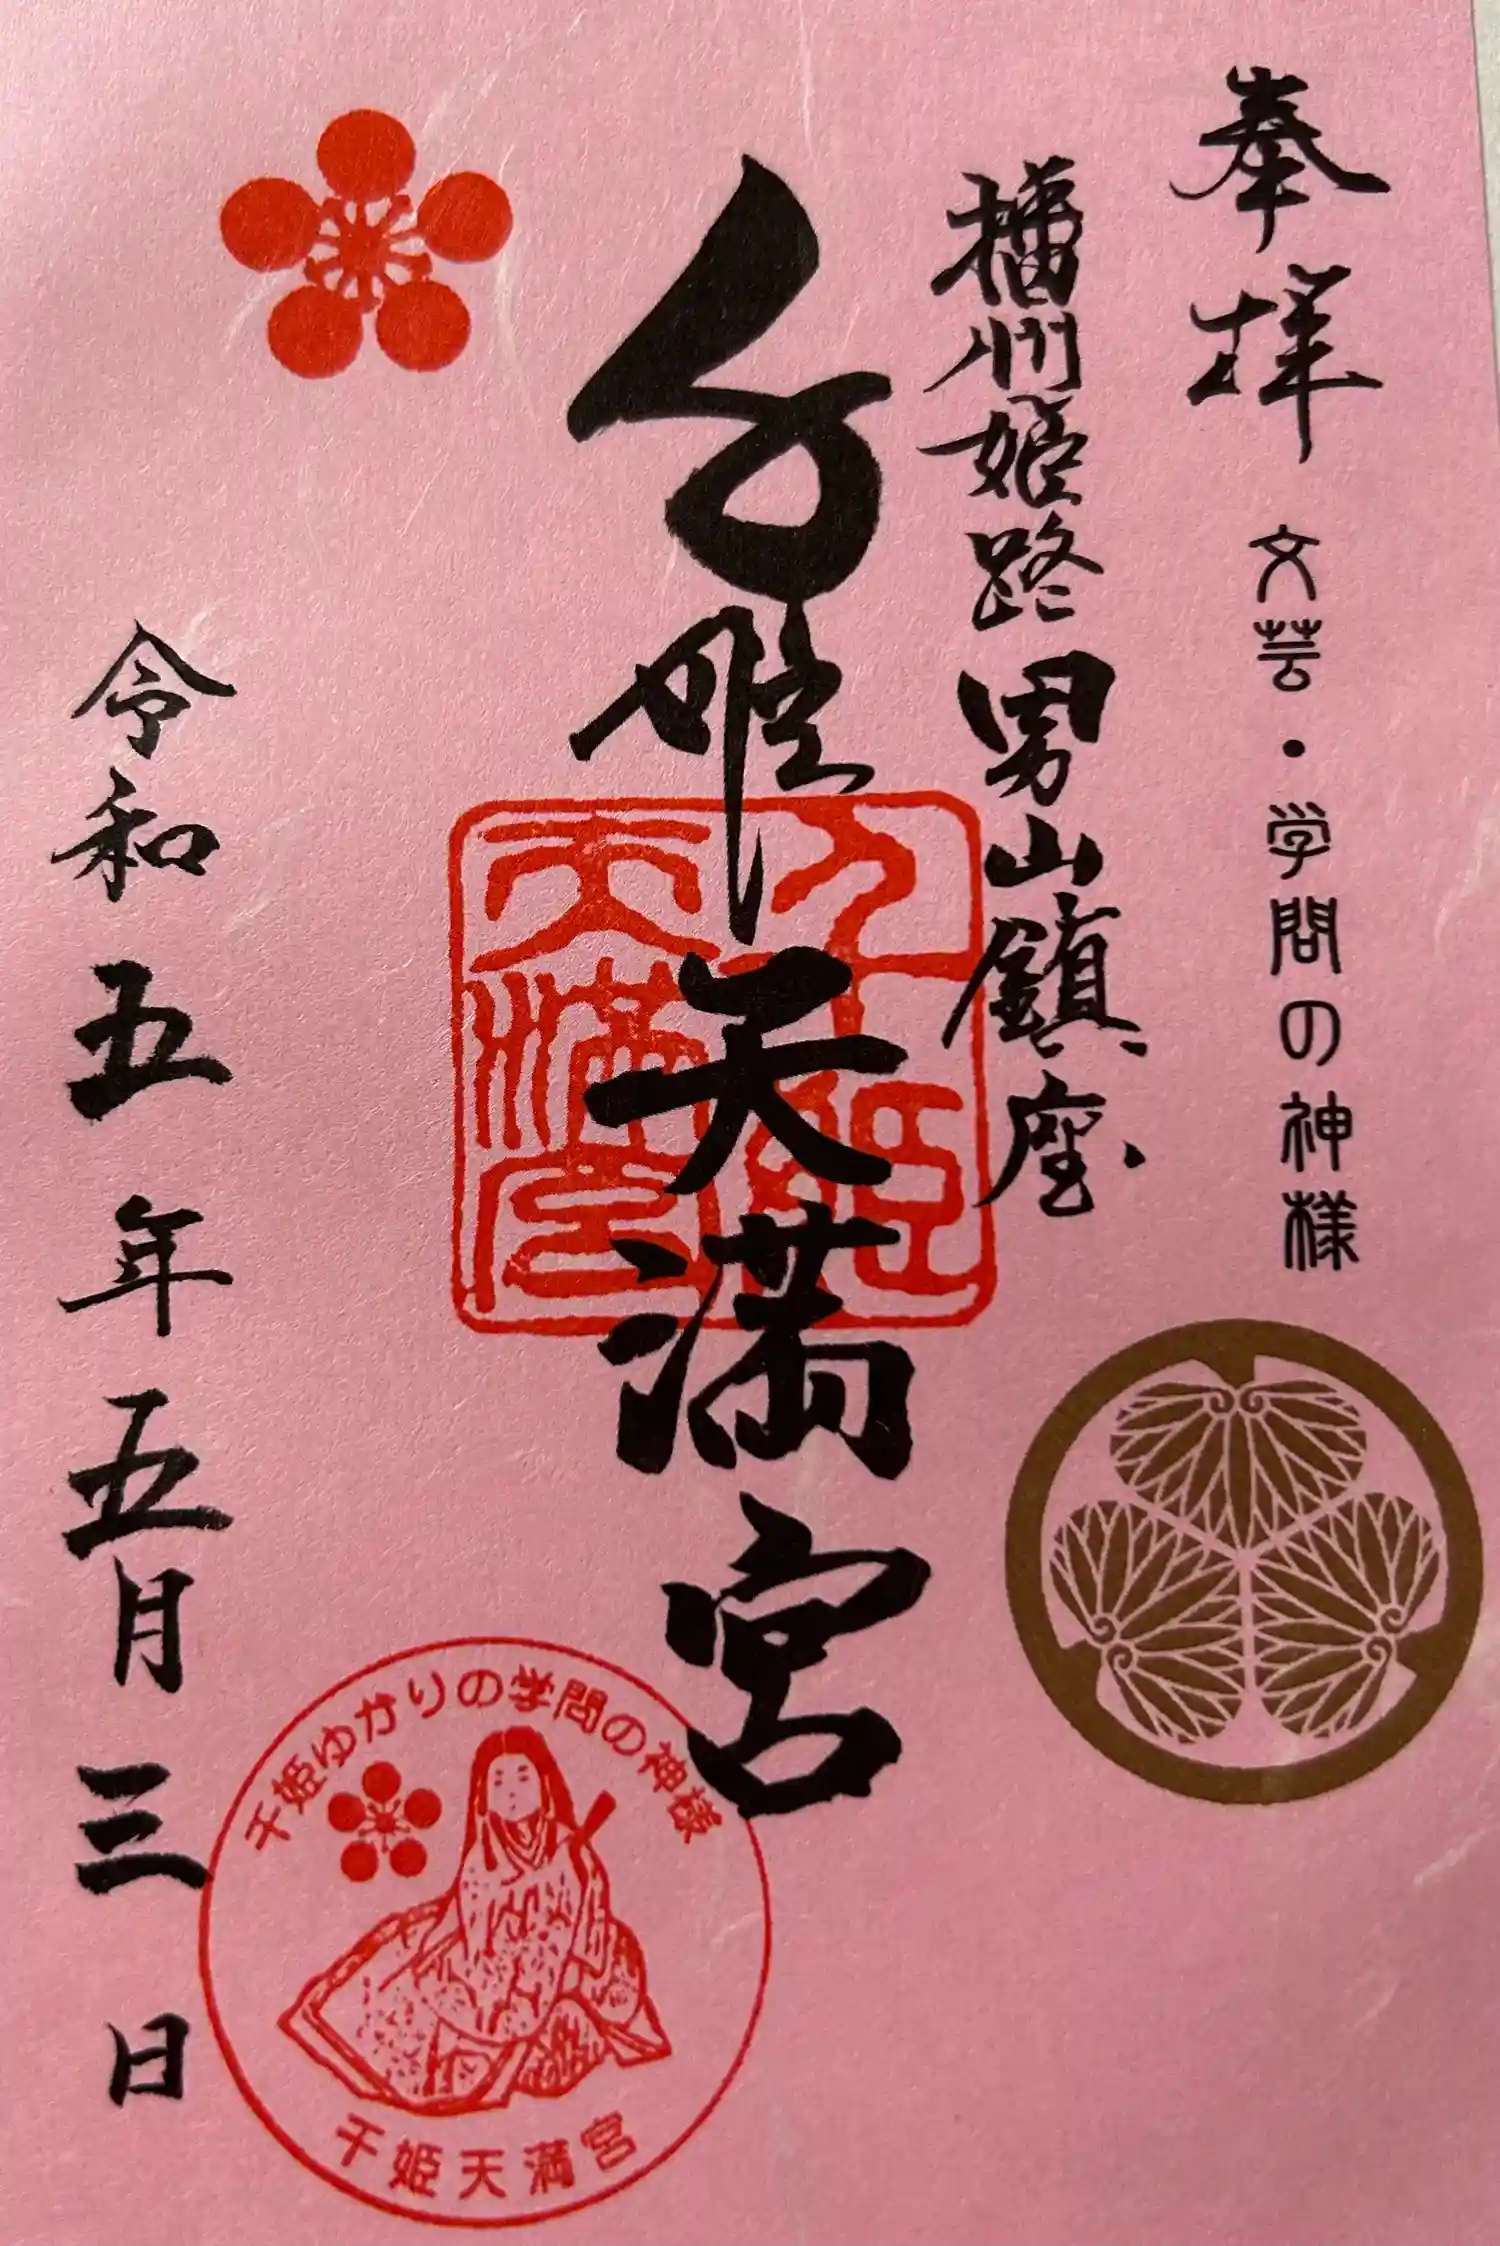 奉拝
文芸・学問の神様
播州姫路男山鎮座
千姫天満宮
千姫
天満宮
令和五年五月三日
千姫ゆかりの学問の神様
千姫天満宮